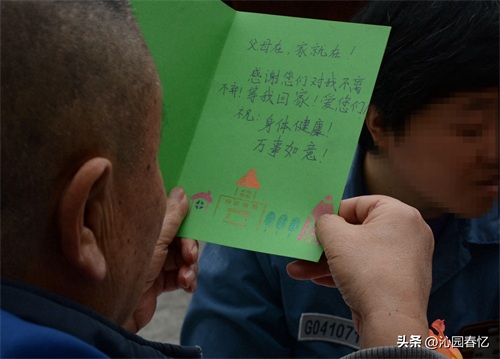 父母在，家就在！
感谢您们对我不离
不弃！等我回家！爱您们
祝：身体健康！
万事如意！
G04107
头条 @沁园春忆